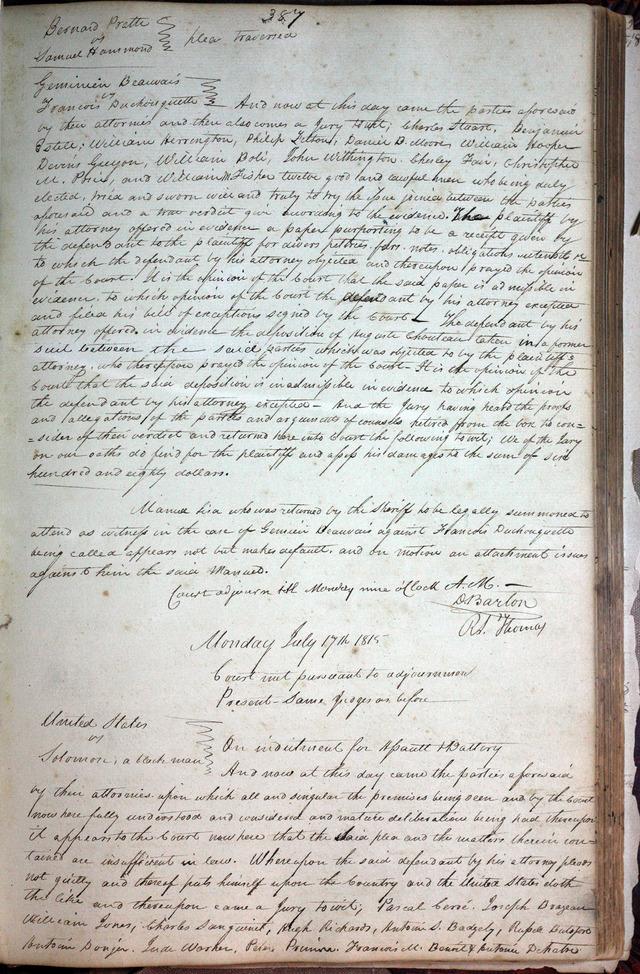 387
Bernard Pratte
vs
Samuel Hammond plea traversed
Geminien Beauvais
vs
Francois Duchouquette And now at this day came the parties aforesaid
by their attornies and then also comes a Jury to wit; Charles Stuart, Benjamin
Estile; William Herrington, Philip Tilton, Daniel B. Moore William Hooper
Devens Guyon, William Boli, John Withington. Chesley Fair, Christopher
M. Price, and William H Fisher twelve good and lawful men who being duly
elected, tried and sworn well and truly to try the Issue joined between the parties
aforesaid and a true verdict give according to the evidence. The plaintiff by
his attorney offered in evidence a paper purporting to be a receipt given by
the defendant to the plaintiff for divers notes. obligations
to which the defendant by his attorney objected and thereupon prayed the opinion
of the Court. It is the opinion of the Court that the said paper is admissible in
evidence. to which opinion of the Court the defendant by his attorney excepted
and filed his bill of exceptions signed by the Court – The defendant by his
attorney offered in evidence the deposition of Auguste Chouteau taken in a former
suit between the said parties which was objected to by the plaintiffs
attorney. who thereupon prayed the opinion of the Court – It is the opinion of the
Court that the said deposition is inadmissible in evidence to which opinion
the defendant by his attorney excepted – And the Jury having heard the proofs
and allegations of the parties and arguments of counsels retired from the box to con=
=sider of their verdict and returned here into Court the following to wit; We of the Jury
on our oaths do find for the plaintiff and assess his damages to the sum of six
hundred and eighty dollars.
Manuel Lisa who was returned by the Sheriff to be legally summoned to
attend as witness in the case of Geminien Beauvais against Francois Duchouquette
being called appears not but makes default. and on motion an attachment issues
against him the said Manuel.
Court adjourn till Monday nine o'Clock A.M. –
D Barton
Rd. Thomas
Monday July 17th 1815
Court met pursuant to adjournment
Present – Same Judges as before
United States
vs
Solomon, a black man On indictment for Assault & Battery
And now at this day came the parties aforesaid
by their attornies upon which all and singular the premises being seen and by the Court
now here fully understood and considered and mature deliberation being had thereupon
it appears to the Court now here that the said plea and the matters therein con=
tained are insufficient in law. Whereupon the said defendant by his attorney pleads
not guilty and thereof puts himself upon the Country and the United States doth
the like and thereupon came a Jury to wit; Pascal Cerré. Joseph Brazeau
William Jones, Charles Sanguinet, Hugh Richards, Antoine S. Badgely, Russel
Antoine Dangen. Jude Warner, Peter Primm. Francois M. Benoit & Antoine